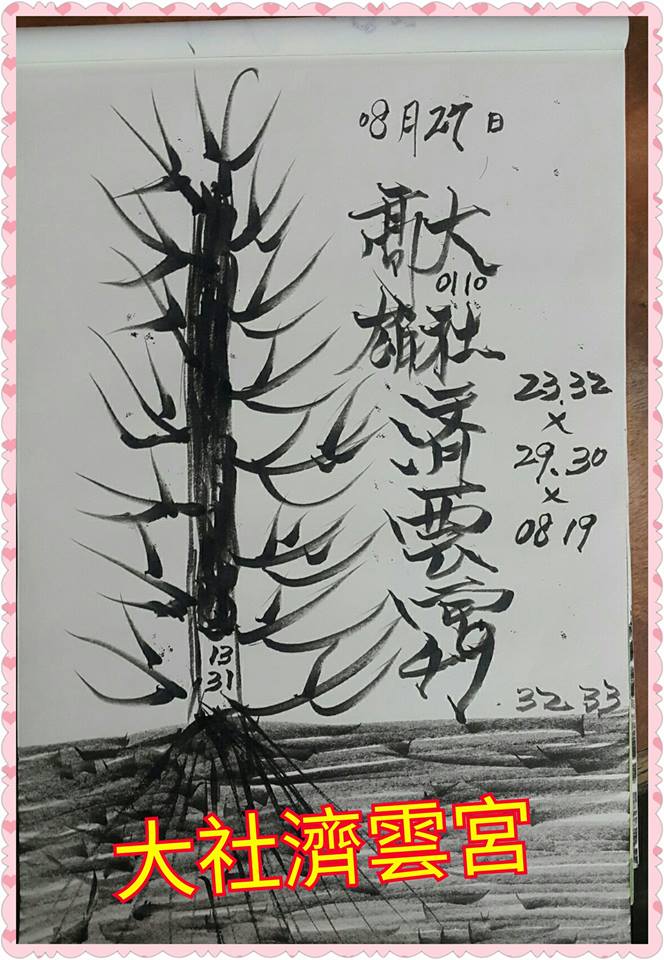 08月27日
高雄
大社濟雲宮
0110
23.32
x
29.30
x
08 19
32 33
13
31
大社濟雲宮